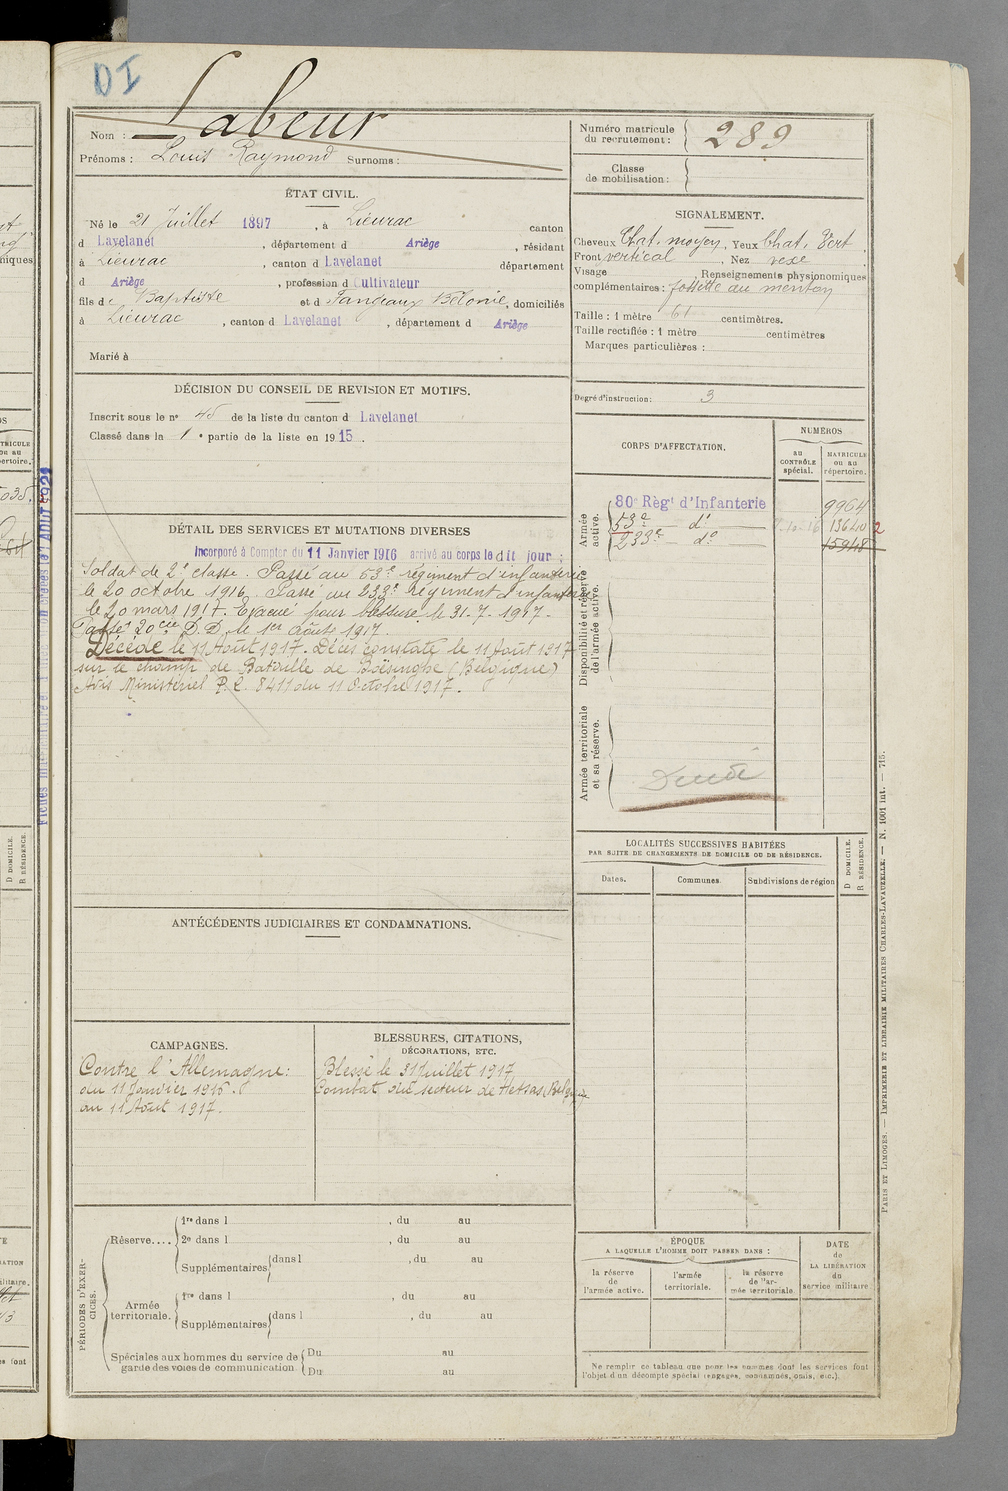 DI
Nom : Labeur
Prénoms : Louis Raymond Surnoms :
Numéro matricule du recrutement : 289
Classe de mobilisation :
ÉTAT CIVIL.
Né le 21 Juillet 1897, à Lieurac canton
d Lavelanet, département d Ariège, résidant
à Lieurac, canton d Lavelanet département
d Ariège, profession d Cultivateur
fils de Baptiste et d Fangeaux Bélonie, domiciliés
à Lieurac, canton d Lavelanet, département d Ariège
Marié à
SIGNALEMENT.
Cheveux Chat. moyen, Yeux Chat. Vert.
Front vertical, Nez vexe
Visage , Renseignements physionomiques
complémentaires : fossette au menton
Taille : 1 mètre 61 centimètres.
Taille rectifiée : 1 mètre centimètres
Marques particulières :
Degré d'instruction : 3
DÉCISION DU CONSEIL DE REVISION ET MOTIFS.
Inscrit sous le n° 45 de la liste du canton d Lavelanet
Classé dans la 1e partie de la liste en 1915.
DÉTAIL DES SERVICES ET MUTATIONS DIVERSES
Incorporé à Compter du 11 Janvier 1916 arrivé au corps le dit jour :
Soldat de 2e classe. Passé au 53e régiment d'infanterie
le 20 octobre 1916. Passé au 233e régiment d'infanterie
le 20 mars 1917. Evacué pour blessure le 31.7.1917.
Passé 20cie D.D. le 1er Août 1917.
Décédé le 11 Août 1917. Décès constaté le 11 Août 1917
sur le champ de Bataille de Boësinghe (Belgique)
Avis Ministériel P.C. 8411 du 11 Octobre 1917.
CORPS D'AFFECTATION.
NUMÉROS
au CONTRÔLE spécial.
MATRICULE ou au répertoire.
Armée active.
80e Règt d'Infanterie 9964
53e do 13640 2
233e do 15948
Disponibilité et réserve de l'armée active.
Armée territoriale et sa réserve.
Décédé
LOCALITÉS SUCCESSIVES HABITÉES
PAR SUITE DE CHANGEMENTS DE DOMICILE OU DE RÉSIDENCE.
Dates.
Communes.
Subdivisions de région
D DOMICILE.
R RÉSIDENCE.
ANTÉCÉDENTS JUDICIAIRES ET CONDAMNATIONS.
CAMPAGNES.
Contre l'Allemagne :
du 11 Janvier 1916.
au 11 Août 1917.
BLESSURES, CITATIONS,
DÉCORATIONS, ETC.
Blessé le 31 Juillet 1917
Combat du secteur de Hetsas (Belgique)
PÉRIODES D'EXERCICES.
Réserve.... 1re dans l , du au
2e dans l , du au
Supplémentaires dans l , du au
Armée territoriale. 1re dans l , du au
Supplémentaires dans l , du au
Spéciales aux hommes du service de garde des voies de communication Du au
Du au
ÉPOQUE
A LAQUELLE L'HOMME DOIT PASSER DANS :
la réserve de l'armée active.
l'armée territoriale.
la réserve de l'armée territoriale.
DATE de LA LIBÉRATION du service militaire.
Ne remplir ce tableau que pour les hommes dont les services font
l'objet d'un décompte spécial (engagés, condamnés, omis, etc.).
PARIS ET LIMOGES. — IMPRIMERIE ET LIBRAIRIE MILITAIRES CHARLES-LAVAUZELLE. — N. 1001 Int. — 715.